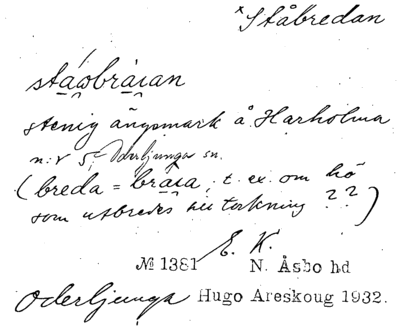 *Ståbredan
stáobrạian
stenig ängsmark å Harholma
n:r 5, Oderljunga sn.
(breda = brạia, t. ex. om hö
som utbredes till torkning ??)
E. K.
№ 1381 N. Åsbo hd
Oderljunga Hugo Areskoug 1932.